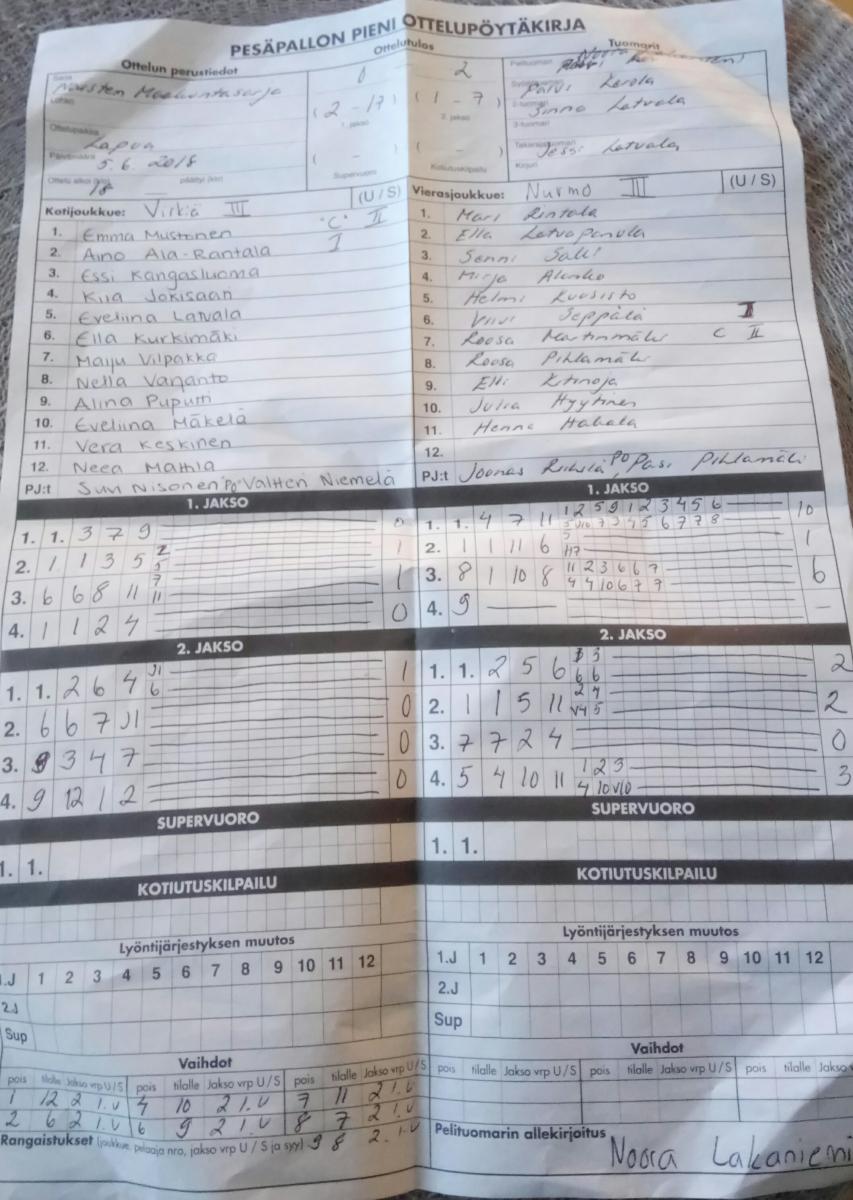 PESÄPALLON PIENI OTTELUPÖYTÄKIRJA
Ottelun perustiedot
Ottelutulos
Tuomarit
Sarja
Naisten Maakuntasarja
0 2
Pelituomari Noora
Lohko
(2 - 17) (1 - 7)
1. jakso 2. jakso
Päivi Kerola
2-tuomari
Jinna Latvala
3-tuomari
Ottelupaikka
Lapua
( - ) ( - )
Takarajatuomari
Jessi Latvala
Kirjuri
Päivämäärä
5.6.2018
Supervuoro Kotiutuskilpailu
Ottelu alkoi (klo) 18 päättyi (klo)
Kotijoukkue: Virkiä III (U / S)
1. Emma Mustonen "C" II
2. Aino Ala-Rantala I
3. Essi Kangasluoma
4. Kiia Jokisaari
5. Eveliina Latvala
6. Ella Kurkimäki
7. Maiju Vilpakka
8. Nella Varjanto
9. Alina Pupurri
10. Eveliina Mäkelä
11. Vera Keskinen
12. Neea Mattila
PJ:t Suvi Nisonen "PO" Valtteri Niemelä
Vierasjoukkue: Nurmo III (U / S)
1. Mari Rintala
2. Ella Latvapanula
3. Senni Salli
4. Mirja Alanko
5. Helmi Luosisto
6. Viivi Seppälä I
7. Roosa Martinmäki C II
8. Roosa Pihlamäki
9. Elli Kitinoja
10. Julia Hyytinen
11. Henna Hakala
12.
PJ:t Joonas PO Pasi Pihlamäki
1. JAKSO
1. 1. 3 7 9 0
2. 1 1 3 5 2 5 1
3. 6 6 8 11 7 11 1
4. 1 1 2 4 0
2. JAKSO
1. 1. 2 6 4 11 6 1
2. 6 6 7 11 0
3. 9 3 4 7 0
4. 9 12 1 2 0
1. JAKSO
1. 1. 4 7 11 1 2 5 9 1 2 3 4 5 6 10
5 V10 7 3 4 5 6 7 7 8
2. 1 1 11 6 5 1
3. 8 1 10 8 11 2 3 6 6 7 6
4 4 10 6 7 7
4. 9 — —
2. JAKSO
1. 1. 2 5 6 3 2
6 6
2. 1 1 5 11 2 4 2
V4 5
3. 7 7 2 4 0
4. 5 4 10 11 1 2 3 3
4 10 V10
SUPERVUORO
1. 1.
SUPERVUORO
1. 1.
KOTIUTUSKILPAILU
KOTIUTUSKILPAILU
Lyöntijärjestyksen muutos
1.J 1 2 3 4 5 6 7 8 9 10 11 12
2.J
Sup
Lyöntijärjestyksen muutos
1.J 1 2 3 4 5 6 7 8 9 10 11 12
2.J
Sup
Vaihdot
pois tilalle Jakso vrp U / S pois tilalle Jakso vrp U / S pois tilalle Jakso vrp U / S
1 12 2 1.U 4 10 2 1.U 7 11 2 1.U
2 6 2 1.U 6 9 2 1.U 8 7 2 1.U
Rangaistukset (joukkue, pelaaja nro, jakso vrp U / S ja syy) 9 8 2. 1.U
Vaihdot
pois tilalle Jakso vrp U / S pois tilalle Jakso vrp U / S pois tilalle Jakso
Pelituomarin allekirjoitus
Noora Lakaniemi